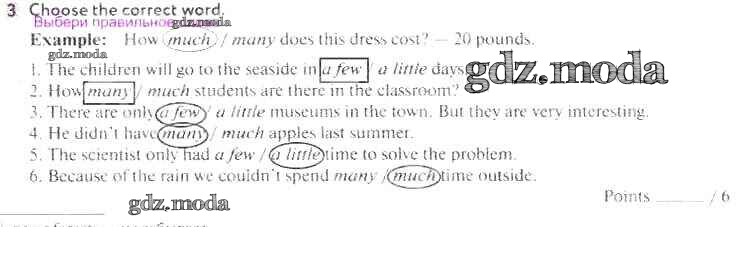 3 Choose the correct word.
Выбери правильное gdz.moda
Example: How much / many does this dress cost? — 20 pounds.
gdz.moda
1. The children will go to the seaside in a few / a little days
gdz.moda
2. How many / much students are there in the classroom?
3. There are only a few / a little museums in the town. But they are very interesting.
4. He didn't have many / much apples last summer.
5. The scientist only had a few / a little time to solve the problem.
6. Because of the rain we couldn't spend many / much time outside.
Points ______ / 6
gdz.moda